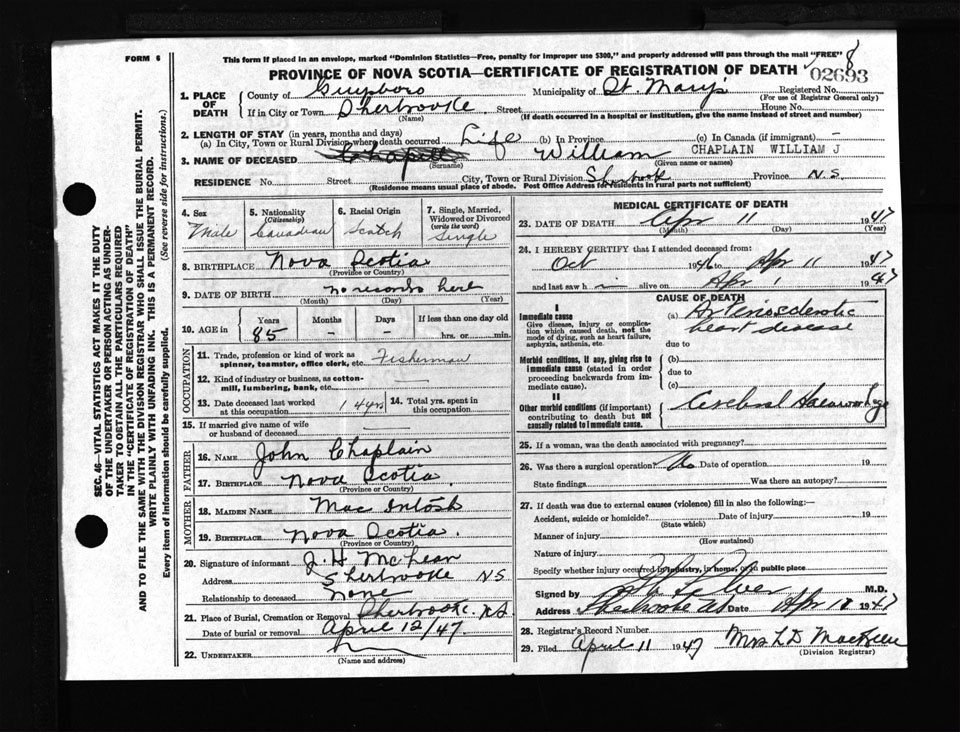 FORM 6
This form if placed in an envelope, marked "Dominion Statistics—Free, penalty for improper use $300," and properly addressed will pass through the mail "FREE"
8
PROVINCE OF NOVA SCOTIA—CERTIFICATE OF REGISTRATION OF DEATH
02693
1. PLACE OF DEATH
County of Guysboro Municipality of St. Mary's Registered No.
(For use of Registrar General only)
If in City or Town Sherbrooke Street House No.
(Name) (If death occurred in a hospital or institution, give the name instead of street and number)
2. LENGTH OF STAY (in years, months and days)
(a) In City, Town or Rural Division where death occurred Life (b) In Province (c) In Canada (if immigrant) -
3. NAME OF DECEASED William CHAPLAIN WILLIAM J
(Surname) (Given name or names)
RESIDENCE No. Street City, Town or Rural Division Sherbrooke Province N.S.
(Residence means usual place of abode. Post Office Address for residents in rural parts not sufficient)
4. Sex
Male
5. Nationality
(Citizenship)
Canadian
6. Racial Origin
Scotch
7. Single, Married, Widowed or Divorced
(write the word)
Single
8. BIRTHPLACE Nova Scotia
(Province or Country)
9. DATE OF BIRTH no records here
(Month) (Day) (Year)
10. AGE in
Years Months Days If less than one day old
85 — — hrs. or min.
OCCUPATION
11. Trade, profession or kind of work as spinner, teamster, office clerk, etc. Fisherman
12. Kind of industry or business, as cotton-mill, lumbering, bank, etc. —
13. Date deceased last worked at this occupation 14. Total yrs. spent in this occupation
15. If married give name of wife or husband of deceased
FATHER
16. NAME John Chaplain
17. BIRTHPLACE Nova Scotia
(Province or Country)
MOTHER
18. MAIDEN NAME Mac Intosh
19. BIRTHPLACE Nova Scotia.
(Province or Country)
20. Signature of informant J. H. McLean
Address Sherbrooke NS
Relationship to deceased None
21. Place of Burial, Cremation or Removal Sherbrooke. N.S.
Date of burial or removal April 12/47.
22. UNDERTAKER
(Name and address)
MEDICAL CERTIFICATE OF DEATH
23. DATE OF DEATH Apr 11 1947
(Month) (Day) (Year)
24. I HEREBY CERTIFY that I attended deceased from:
Oct 1946 to Apr 11 1947
and last saw h i alive on Apr 1 1947
CAUSE OF DEATH
I
Immediate cause
Give disease, injury or complication which caused death, not the mode of dying, such as heart failure, asphyxia, asthenia, etc.
(a) Arteriosclerotic
heart disease
due to
Morbid conditions, if any, giving rise to immediate cause (stated in order proceeding backwards from immediate cause).
(b)
due to
(c)
II
Other morbid conditions (if important) contributing to death but not causally related to immediate cause.
Cerebral Haemorrhage
25. If a woman, was the death associated with pregnancy?
26. Was there a surgical operation? No Date of operation 19
State findings Was there an autopsy?
27. If death was due to external causes (violence) fill in also the following:—
Accident, suicide or homicide? Date of injury 19
(State which)
Manner of injury
(How sustained)
Nature of injury
Specify whether injury occurred in industry, in home, or in public place
Signed by M.D.
Address Sherbrooke Date Apr 1947
28. Registrar's Record Number
29. Filed April 11 1947 Mrs L D MacKeen
(Division Registrar)
SEC. 46—VITAL STATISTICS ACT MAKES IT THE DUTY
OF THE UNDERTAKER OR PERSON ACTING AS UNDER-
TAKER TO OBTAIN ALL THE PARTICULARS REQUIRED
IN THE "CERTIFICATE OF REGISTRATION OF DEATH"
AND TO FILE THE SAME WITH THE DIVISION REGISTRAR WHO SHALL ISSUE THE BURIAL PERMIT.
WRITE PLAINLY WITH UNFADING INK. THIS IS A PERMANENT RECORD.
Every item of information should be carefully supplied. (See reverse side for instructions.)